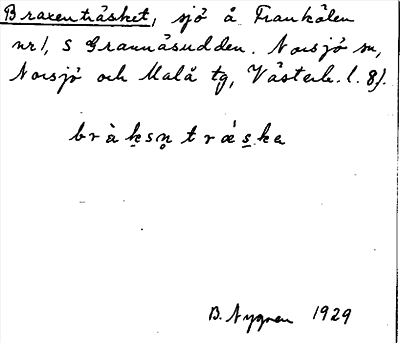 Braxenträsket, sjö å Frankälen
nr 1, S Grannäsudden. Norsjö sn,
Norsjö och Malå tg, Västerb. l. 8).
bràksn̥ træ´ske
B. Nygren 1929